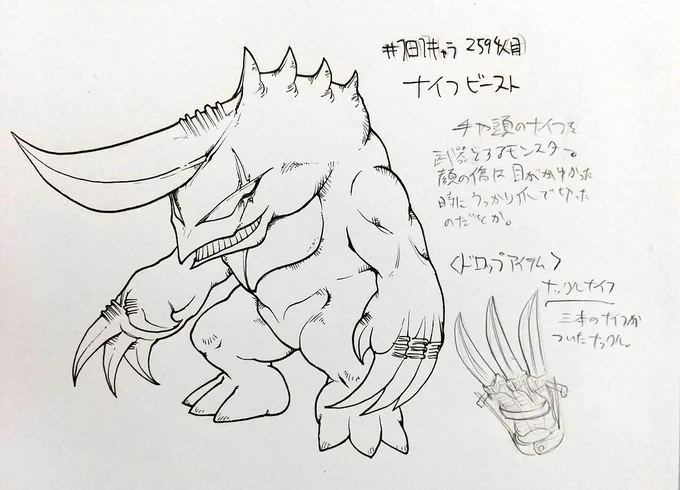 #1日1キャラ 2594体目
ナイフビースト
手や頭のナイフを
武器とするモンスター。
顔の傷は目がかゆかった
時にうっかり爪で切った
のだとか。
<ドロップアイテム>
ナックルナイフ
三本のナイフが
ついたナックル。